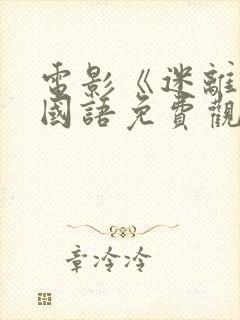 電影《迷離
國語免費觀
章冷冷